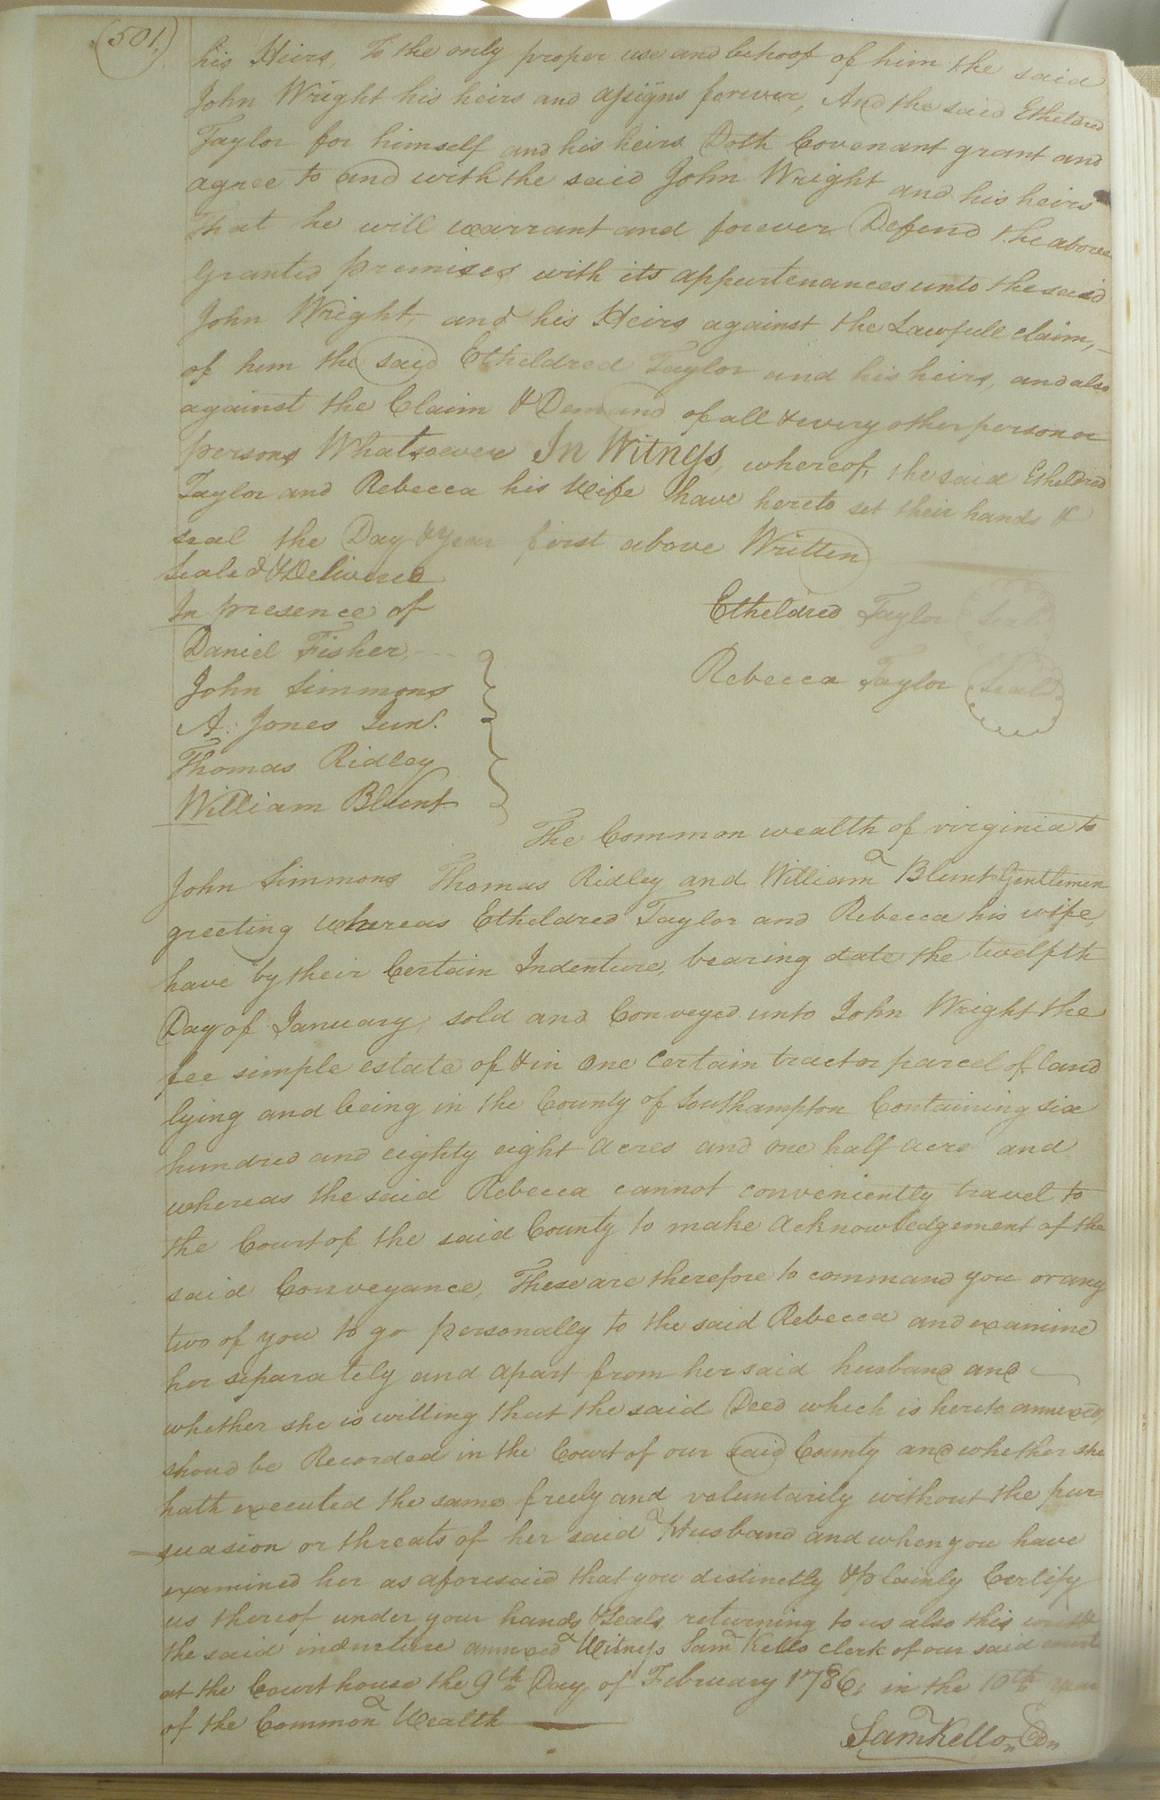 (501)
his Heirs, To the only proper use and behoof of him the said
John Wright his heirs and assigns forever, And the said Etheldred
Taylor for himself and his heirs Doth Covenant grant and
agree to and with the said John Wright and his heirs
that he will warrant and forever Defend the above
Granted premises with its appurtenances unto the said
John Wright, and his Heirs against the Lawfull claim,
of him the said Etheldred Taylor and his heirs, and also
against the Claim & Demand of all & every other person or
persons Whatsoever In Witness, whereof, the said Etheldred
Taylor and Rebecca his Wife have hereto set their hands &
seal the Day & Year first above Written
Sealed & Delivered
In presence of
Etheldred Taylor (Seal)
Daniel Fisher
Rebecca Taylor (Seal)
John Simmons
A. Jones Junr.
Thomas Ridley
William Blunt
The Common wealth of virginia to
John Simmons Thomas Ridley and William Blunt Gentlemen
greeting whereas Etheldred Taylor and Rebecca his wife,
have by their Certain Indenture, bearing date the twelfth
Day of January, sold and Conveyed unto John Wright the
fee simple estate of & in one Certain tract or parcel of land
lying and being in the County of Southampton Containing six
hundred and eighty eight acres and one half acre and
whereas the said Rebecca cannot conveniently travel to
the Court of the said County to make acknowledgement of the
said Conveyance, These are therefore to command you or any
two of you to go personally to the said Rebecca and examine
her separately and apart from her said husband and
whether she is willing that the said Deed which is hereto annexed,
shoud be Recorded in the Court of our said County and whether she
hath executed the same freely and voluntarily without the pur=
suasion or threats of her said Husband and when you have
examined her as aforesaid that you distinctly & plainly Certify
us thereof under your hands & Seals, returning to us also this writ &
the said indenture annexed Witness Sam Kello clerk of our said court
at the Court house the 9th Day of February 1786, in the 10th year
of the Common Wealth
Sam Kello, Cn